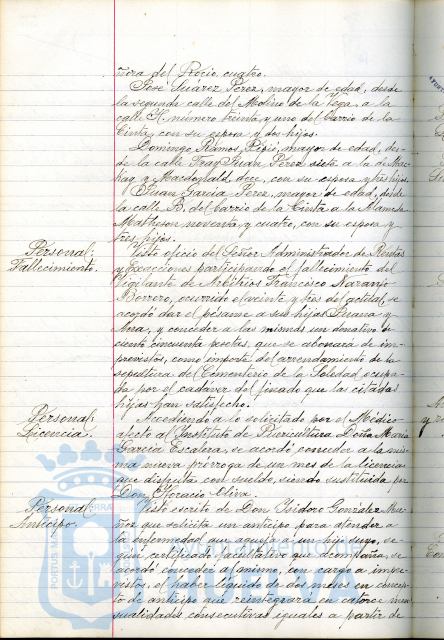 ñora del Rocio cuatro.
José Suárez Pérez, mayor de edad, desde
la segunda calle del Molino de la Vega, a la
calle K. número treinta y uno del barrio de la
Cinta, con su esposa y dos hijos.
Domingo Ramos, mayor de edad, des-
de la calle Fray Juan Pérez siete a la de Mac-
kay y Macdonald doce, con su esposa y tres hijos.
Juan García Pérez, mayor de edad, desde
la calle B. del barrio de la Cinta a la Alameda
Matheson noventa y cuatro, con su esposa y
tres hijos.
Personal.
Fallecimiento.
Visto oficio del Señor Administrador de Rentas
y Exacciones participando el fallecimiento del
Vigilante de Arbitrios Francisco Naranjo
Borrero, ocurrido el veinte y tres del actual, se
acordó dar el pésame a sus hijas Juana y
Ana, y conceder a las mismas un donativo de
ciento cincuenta pesetas, que se abonará de im-
previstos, como importe del arrendamiento de la
sepultura del Cementerio de la Soledad ocupa-
da por el cadaver del finado que las citadas
hijas han satisfecho.
Personal.
Licencia.
Accediendo a lo solicitado por el Médico
afecto al Instituto de Puericultura Doña María
García Escalera, se acordó conceder a la mis-
ma nueva prórroga de un mes de la licencia
que disfruta con sueldo, siendo sustituida por
Don Horacio Oliva.
Personal.
Anticipo.
Visto escrito de Don Isidoro González Mu-
ñoz que solicita un anticipo para atender a
la enfermedad que aqueja a un hijo suyo, se-
gún certificado facultativo que acompaña, se
acordó conceder al mismo, con cargo a impre-
vistos, el haber líquido de dos meses en concep-
to de anticipo que reintegrará en catorce men-
sualidades consecutivas iguales a partir de